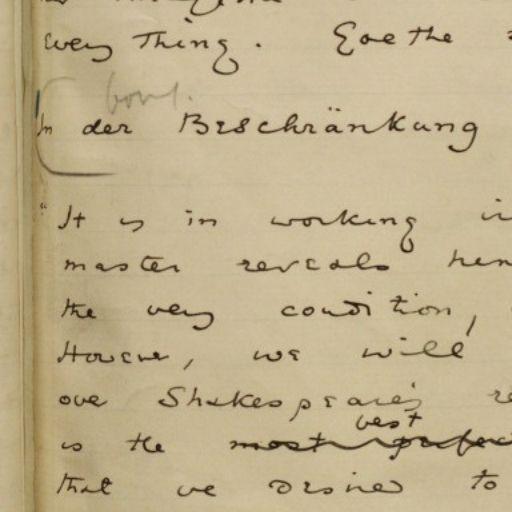 every thing. Goethe
cont.
In der Beschränkung
"It is in working
master reveals
the very condition,
However, we will
over Shakespeare's
best
is the most perfect
that we desire to